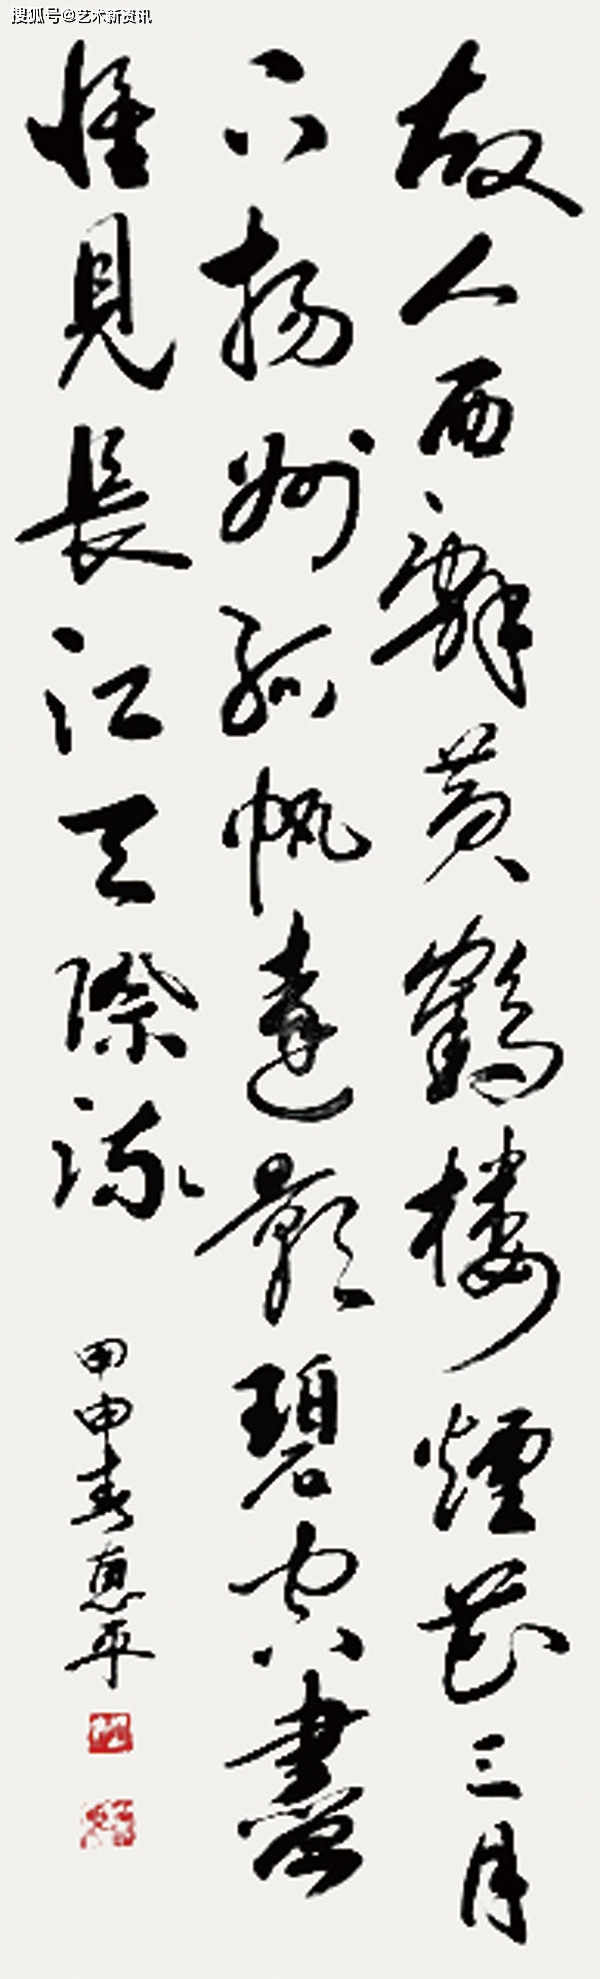 搜狐号@艺术新资讯
故人西辭黄鶴楼煙花三月
下揚州孤帆遠影碧空盡
惟見長江天際流
甲申春惠平